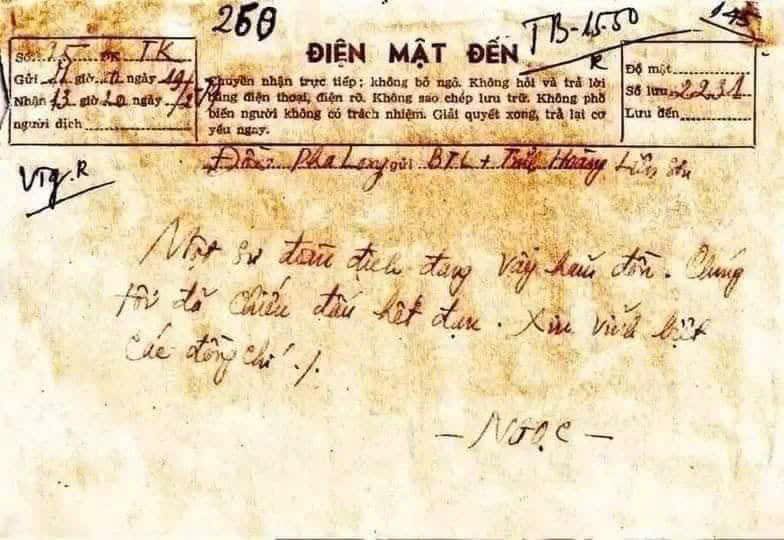 250
TB-1550
145
R
Số 25 ĐK TK
Gửi giờ ngày
Nhận 13 giờ 20 ngày
người dịch
ĐIỆN MẬT ĐẾN
Chuyển nhận trực tiếp; không bỏ ngỏ. Không hỏi và trả lời
bằng điện thoại, điện rõ. Không sao chép lưu trữ. Không phổ
biến người không có trách nhiệm. Giải quyết xong, trả lại cơ
yếu ngay.
Độ mật
Số lưu 2231
Lưu đến
Vtg.R
Đồn Pha Long gửi BTL + Tỉnh Hoàng Liên Sơn
Một sư đoàn địch đang vây hãm đồn. Chúng
tôi đã chiến đấu hết đạn. Xin vĩnh biệt
các đồng chí ./.
- NGỌC -